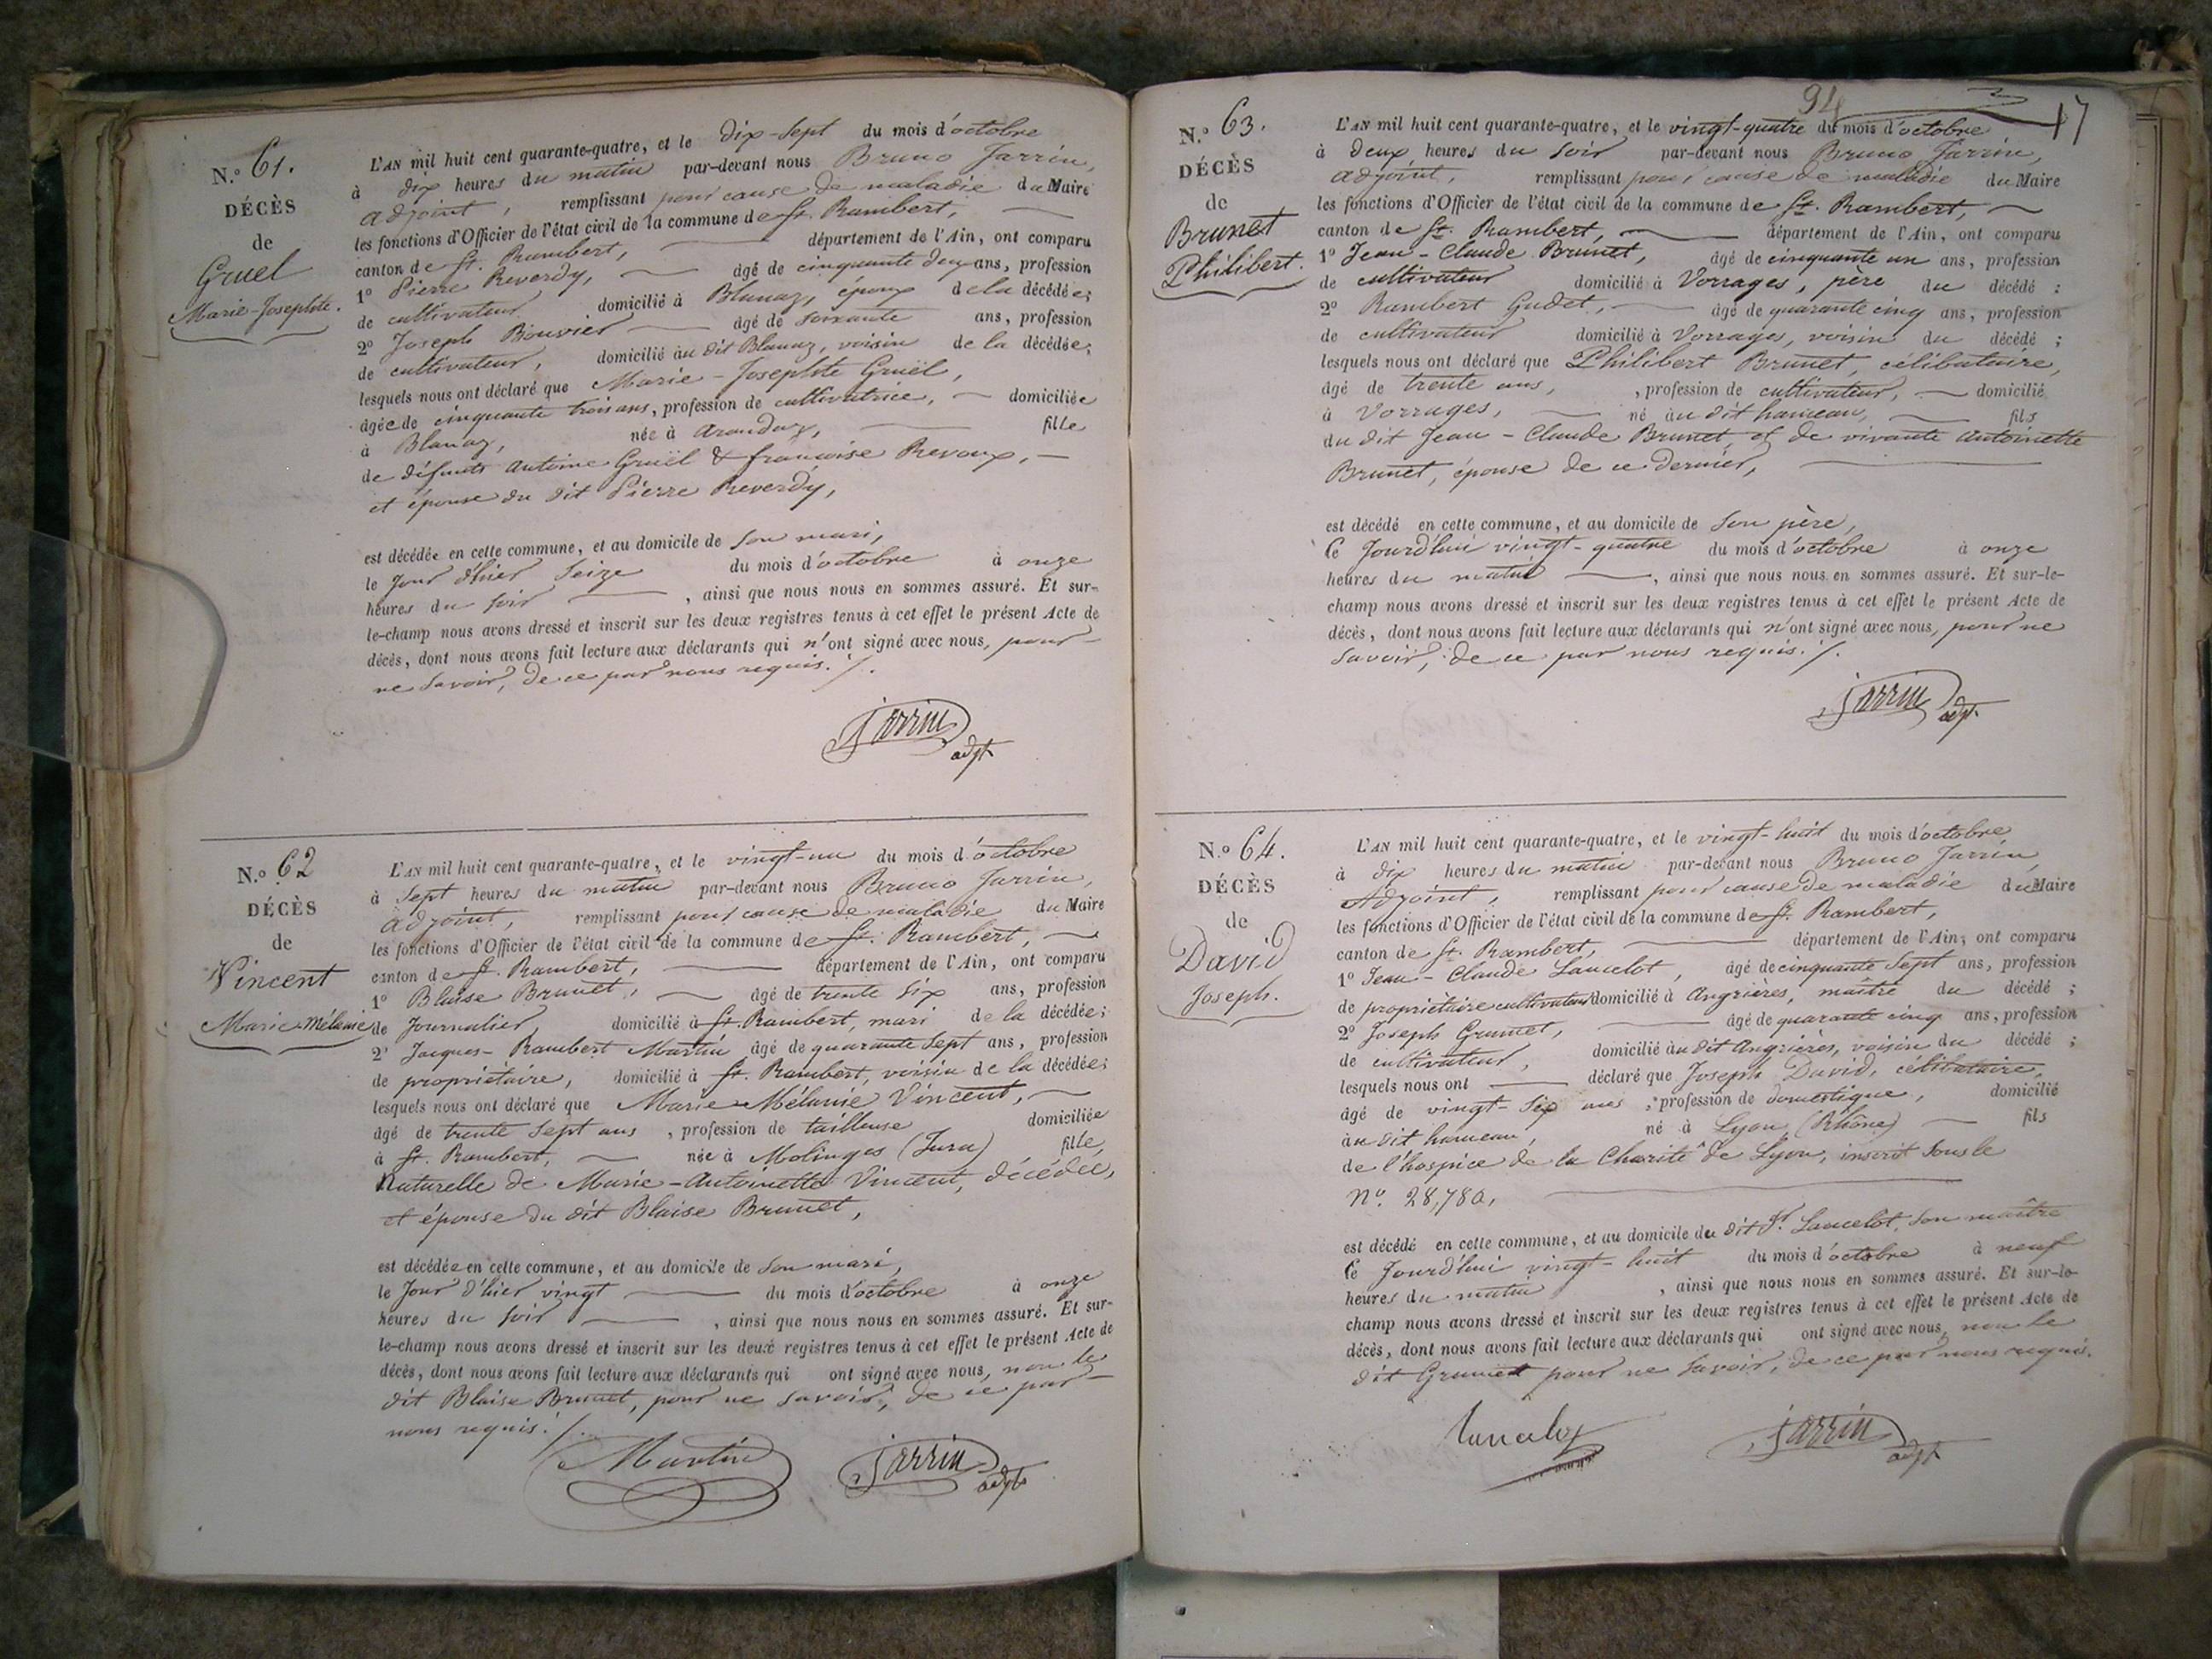 N.º 61.
DÉCÈS
de
Gruel
Marie-Josephte.
L'AN mil huit cent quarante-quatre, et le dix-sept du mois d'octobre
à dix heures du matin par-devant nous Bruno Jarrin,
adjoint, remplissant pour cause de maladie du Maire
les fonctions d'Officier de l'état civil de la commune de St. Rambert,
canton de St. Rambert, département de l'Ain, ont comparu
1º Pierre Reverdy, âgé de cinquante deux ans, profession
de cultivateur domicilié à Blanaz, époux de la décédée;
2º Joseph Bouvier âgé de soixante ans, profession
de cultivateur, domicilié au dit Blanaz, voisin de la décédée;
lesquels nous ont déclaré que Marie-Josephte Gruël,
âgée de cinquante trois ans, profession de cultivatrice, domiciliée
à Blanaz, née à Arandaz, fille
de défunts Antoine Gruël & françoise Revoux,
et épouse du dit Pierre Reverdy,
est décédée en cette commune, et au domicile de son mari,
le jour d'hier seize du mois d'octobre à onze
heures du soir, ainsi que nous nous en sommes assuré. Et sur-
le-champ nous avons dressé et inscrit sur les deux registres tenus à cet effet le présent Acte de
décès, dont nous avons fait lecture aux déclarants qui n'ont signé avec nous, pour
ne savoir, de ce par nous requis. /.
Jarrin
adjt
N.º 62
DÉCÈS
de
Vincent
Marie-Mélanie
L'AN mil huit cent quarante-quatre, et le vingt-un du mois d'octobre
à sept heures du matin par-devant nous Bruno Jarrin,
adjoint, remplissant pour cause de maladie du Maire
les fonctions d'Officier de l'état civil de la commune de St. Rambert,
canton de St. Rambert, département de l'Ain, ont comparu
1º Blaise Brunet, âgé de trente six ans, profession
de journalier, domicilié à St. Rambert, mari de la décédée;
2º Jacques-Rambert Martin âgé de quarante sept ans, profession
de propriétaire, domicilié à St. Rambert, voisin de la décédée;
lesquels nous ont déclaré que Marie-Mélanie Vincent,
âgé de trente sept ans, profession de tailleuse domiciliée
à St. Rambert, née à Molinges (Jura) fille
naturelle de Marie-Antoinette Vincent, décédée,
et épouse du dit Blaise Brunet,
est décédée en cette commune, et au domicile de son mari,
le jour d'hier vingt du mois d'octobre à onze
heures du soir, ainsi que nous nous en sommes assuré. Et sur-
le-champ nous avons dressé et inscrit sur les deux registres tenus à cet effet le présent Acte de
décès, dont nous avons fait lecture aux déclarants qui ont signé avec nous, non le
dit Blaise Brunet, pour ne savoir, de ce par
nous requis. /.
Martin
Jarrin
adjt
94
17
N.º 63.
DÉCÈS
de
Brunet
Philibert.
L'AN mil huit cent quarante-quatre, et le vingt-quatre du mois d'octobre
à deux heures du soir par-devant nous Bruno Jarrin,
adjoint, remplissant pour cause de maladie du Maire
les fonctions d'Officier de l'état civil de la commune de St. Rambert,
canton de St. Rambert, département de l'Ain, ont comparu
1º Jean-Claude Brunet, âgé de cinquante un ans, profession
de cultivateur domicilié à Vorrages, père du décédé;
2º Rambert Gudet, âgé de quarante cinq ans, profession
de cultivateur domicilié à Vorrages, voisin du décédé;
lesquels nous ont déclaré que Philibert Brunet, célibataire,
âgé de trente ans, profession de cultivateur, domicilié
à Vorrages, né au dit hameau, fils
du dit Jean-Claude Brunet, et de vivante Antoinette
Brunet, épouse de ce dernier,
est décédé en cette commune, et au domicile de son père,
le jourd'hui vingt-quatre du mois d'octobre à onze
heures du matin, ainsi que nous nous en sommes assuré. Et sur-le-
champ nous avons dressé et inscrit sur les deux registres tenus à cet effet le présent Acte de
décès, dont nous avons fait lecture aux déclarants qui n'ont signé avec nous, pour ne
savoir, de ce par nous requis. /.
Jarrin
adjt.
N.º 64.
DÉCÈS
de
David
Joseph.
L'AN mil huit cent quarante-quatre, et le vingt-huit du mois d'octobre
à dix heures du matin par-devant nous Bruno Jarrin,
Adjoint, remplissant pour cause de maladie du Maire
les fonctions d'Officier de l'état civil de la commune de St. Rambert,
canton de St. Rambert, département de l'Ain, ont comparu
1º Jean-Claude Lancelot, âgé de cinquante sept ans, profession
de propriétaire cultivateur domicilié à Angrières, maître du décédé;
2º Joseph Grumet, âgé de quarante cinq ans, profession
de cultivateur, domicilié au dit Angrières, voisin du décédé;
lesquels nous ont déclaré que Joseph David, célibataire,
âgé de vingt-six ans, profession de domestique, domicilié
au dit hameau, né à Lyon (Rhône) fils
de l'hospice de la Charité de Lyon, inscrit sous le
Nº. 28,780,
est décédé en cette commune, et au domicile du dit Sr. Lancelot, son maître
le jourd'hui vingt-huit du mois d'octobre à neuf
heures du matin, ainsi que nous nous en sommes assuré. Et sur-le-
champ nous avons dressé et inscrit sur les deux registres tenus à cet effet le présent Acte de
décès, dont nous avons fait lecture aux déclarants qui ont signé avec nous, non le
dit Grumet pour ne savoir, de ce par nous requis.
Lancelot
Jarrin
adjt